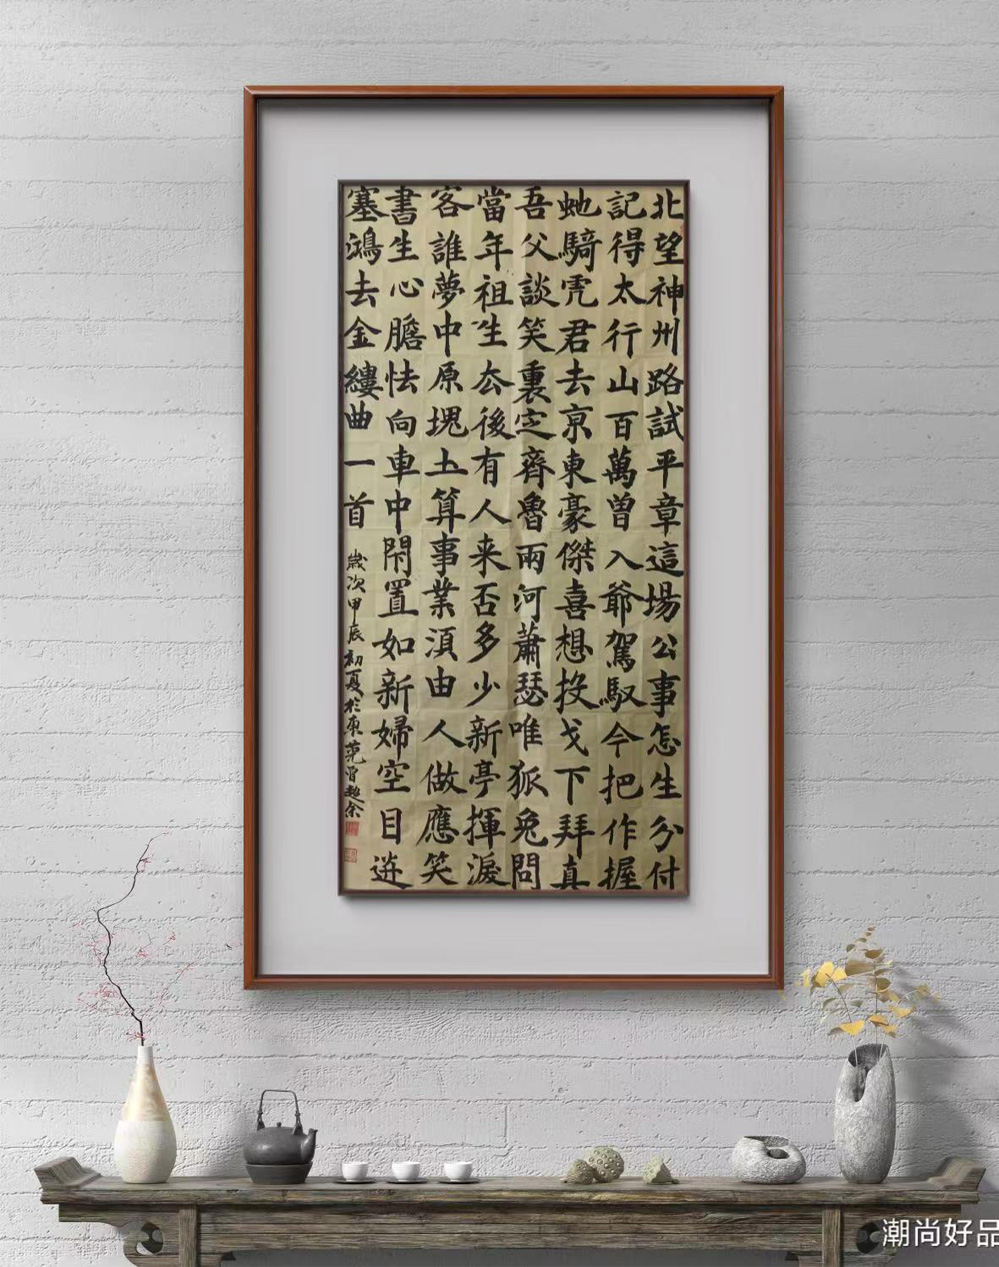 北望神州路試平章這場公事怎生分付
記得太行山百萬曾入爺駕馭今把作握
虵騎虎君去京東豪傑喜想投戈下拜真
吾父談笑裏定齊魯兩河蕭瑟唯狐兔問
當年祖生去後有人来否多少新亭揮淚
客誰夢中原塊土算事業須由人做應笑
書生心膽怯向車中閇置如新婦空目送
塞鴻去金縷曲一首
歲次甲辰初夏於東莞
潮尚好品